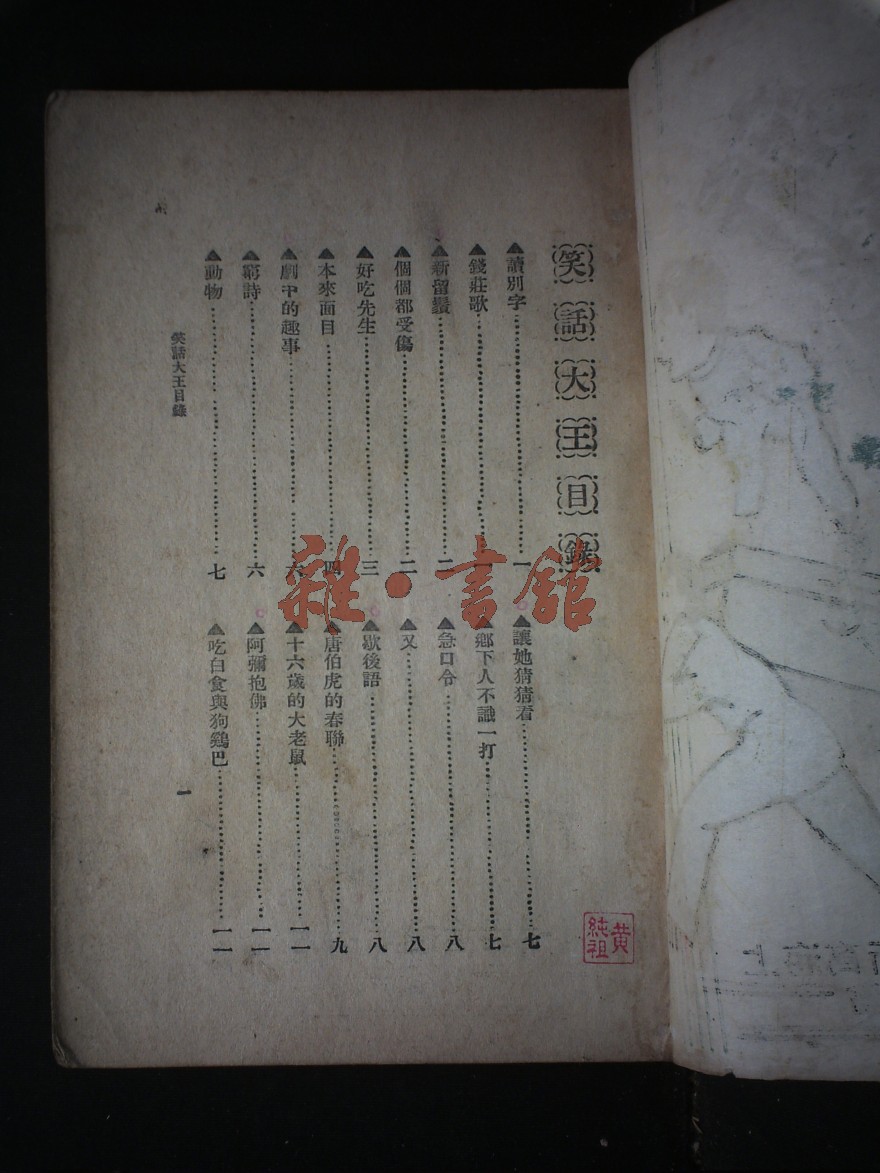 笑話大王目錄
▲讀別字……一
▲錢莊歌……一
▲新留鬚……二
▲個個都受傷……二
▲好吃先生……三
▲本來面目……四
▲劇中的趣事……六
▲窮詩……六
▲動物……七
▲讓她猜猜看……七
▲鄉下人不識一打……七
▲急口令……八
▲又……八
▲歇後語……八
▲唐伯虎的春聯……九
▲十六歲的大老鼠……一一
▲阿彌抱佛……一一
▲吃白食與狗鷄巴……一一
笑話大王目錄
一
黃純祖
雜·書館